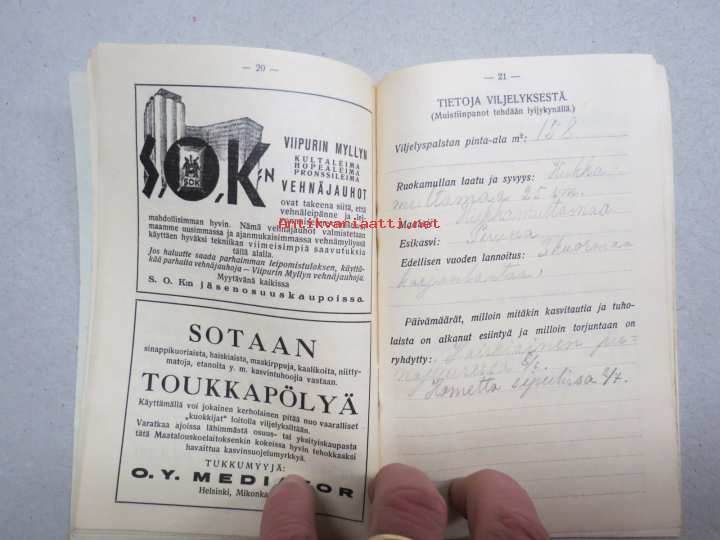 — 20 —
S.O.K:n
VIIPURIN MYLLYN
KULTALEIMA
HOPEALEIMA
PRONSSILEIMA
VEHNÄJAUHOT
ovat takeena siitä, että
vehnäleipänne ja lei-
mahdollisimman hyvin. Nämä vehnäjauhot valmistetaan
maamme uusimmassa ja ajanmukaisimmassa vehnämyllyssä
käyttäen hyväksi tekniikan viimeisimpiä saavutuksia
tällä alalla.
Jos haluatte saada parhaimman leipomistuloksen, käyttä-
kää parhaita vehnäjauhoja — Viipurin Myllyn vehnäjauhoja.
Myytävänä kaikissa
S. O. K:n jäsenosuuskaupoissa.
SOTAAN
sinappikuoriaista, haiskiaista, maakirppuja, kaalikoita, niitty-
matoja, etanoita y. m. kasvintuhoojia vastaan.
TOUKKAPÖLYÄ
Käyttämällä voi jokainen kerholainen pitää nuo vaaralliset
„kuokkijat" loitolla viljelyksiltään.
Varatkaa ajoissa lähimmästä osuus- tai yksityiskaupasta
tätä Maatalouskoelaitoksenkin kokeissa hyvin tehokkaaksi
havaittua kasvinsuojelumyrkkyä.
TUKKUMYYJÄ:
O. Y. MEDIATOR
Helsinki,
— 21 —
TIETOJA VILJELYKSESTÄ.
(Muistiinpanot tehdään lyijykynällä.)
Viljelyspalstan pinta-ala m²:
Ruokamullan laatu ja syvyys: Hiekka
multamaa 25 cm.
Maalaji:
Esikasvi: Peruna
Edellisen vuoden lannoitus: 3 kuormaa
karjanlantaa.
Päivämäärät, milloin mitäkin kasvitautia ja tuho-
laista on alkanut esiintyä ja milloin torjuntaan on
ryhdytty:
Antikvariaatti.net